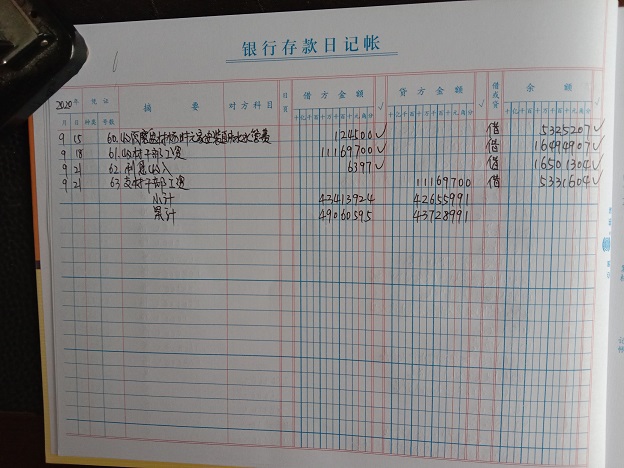 银行存款日记帐
2020年 凭证 摘要 对方科目 日页 借方金额 √ 贷方金额 √ 借或贷 余额 √
月 日 种类 号数 千百十万千百十元角分
9 15 60 124500 √ 借 5325207 √
9 18 61 收村干部工资 11169700 √ 借 16494907 √
9 21 62 利息收入 6397 √ 借 16501304 √
9 21 63 支村干部工资 11169700 借 5331604 √
小计 43413924 42655991
累计 49060595 43728991